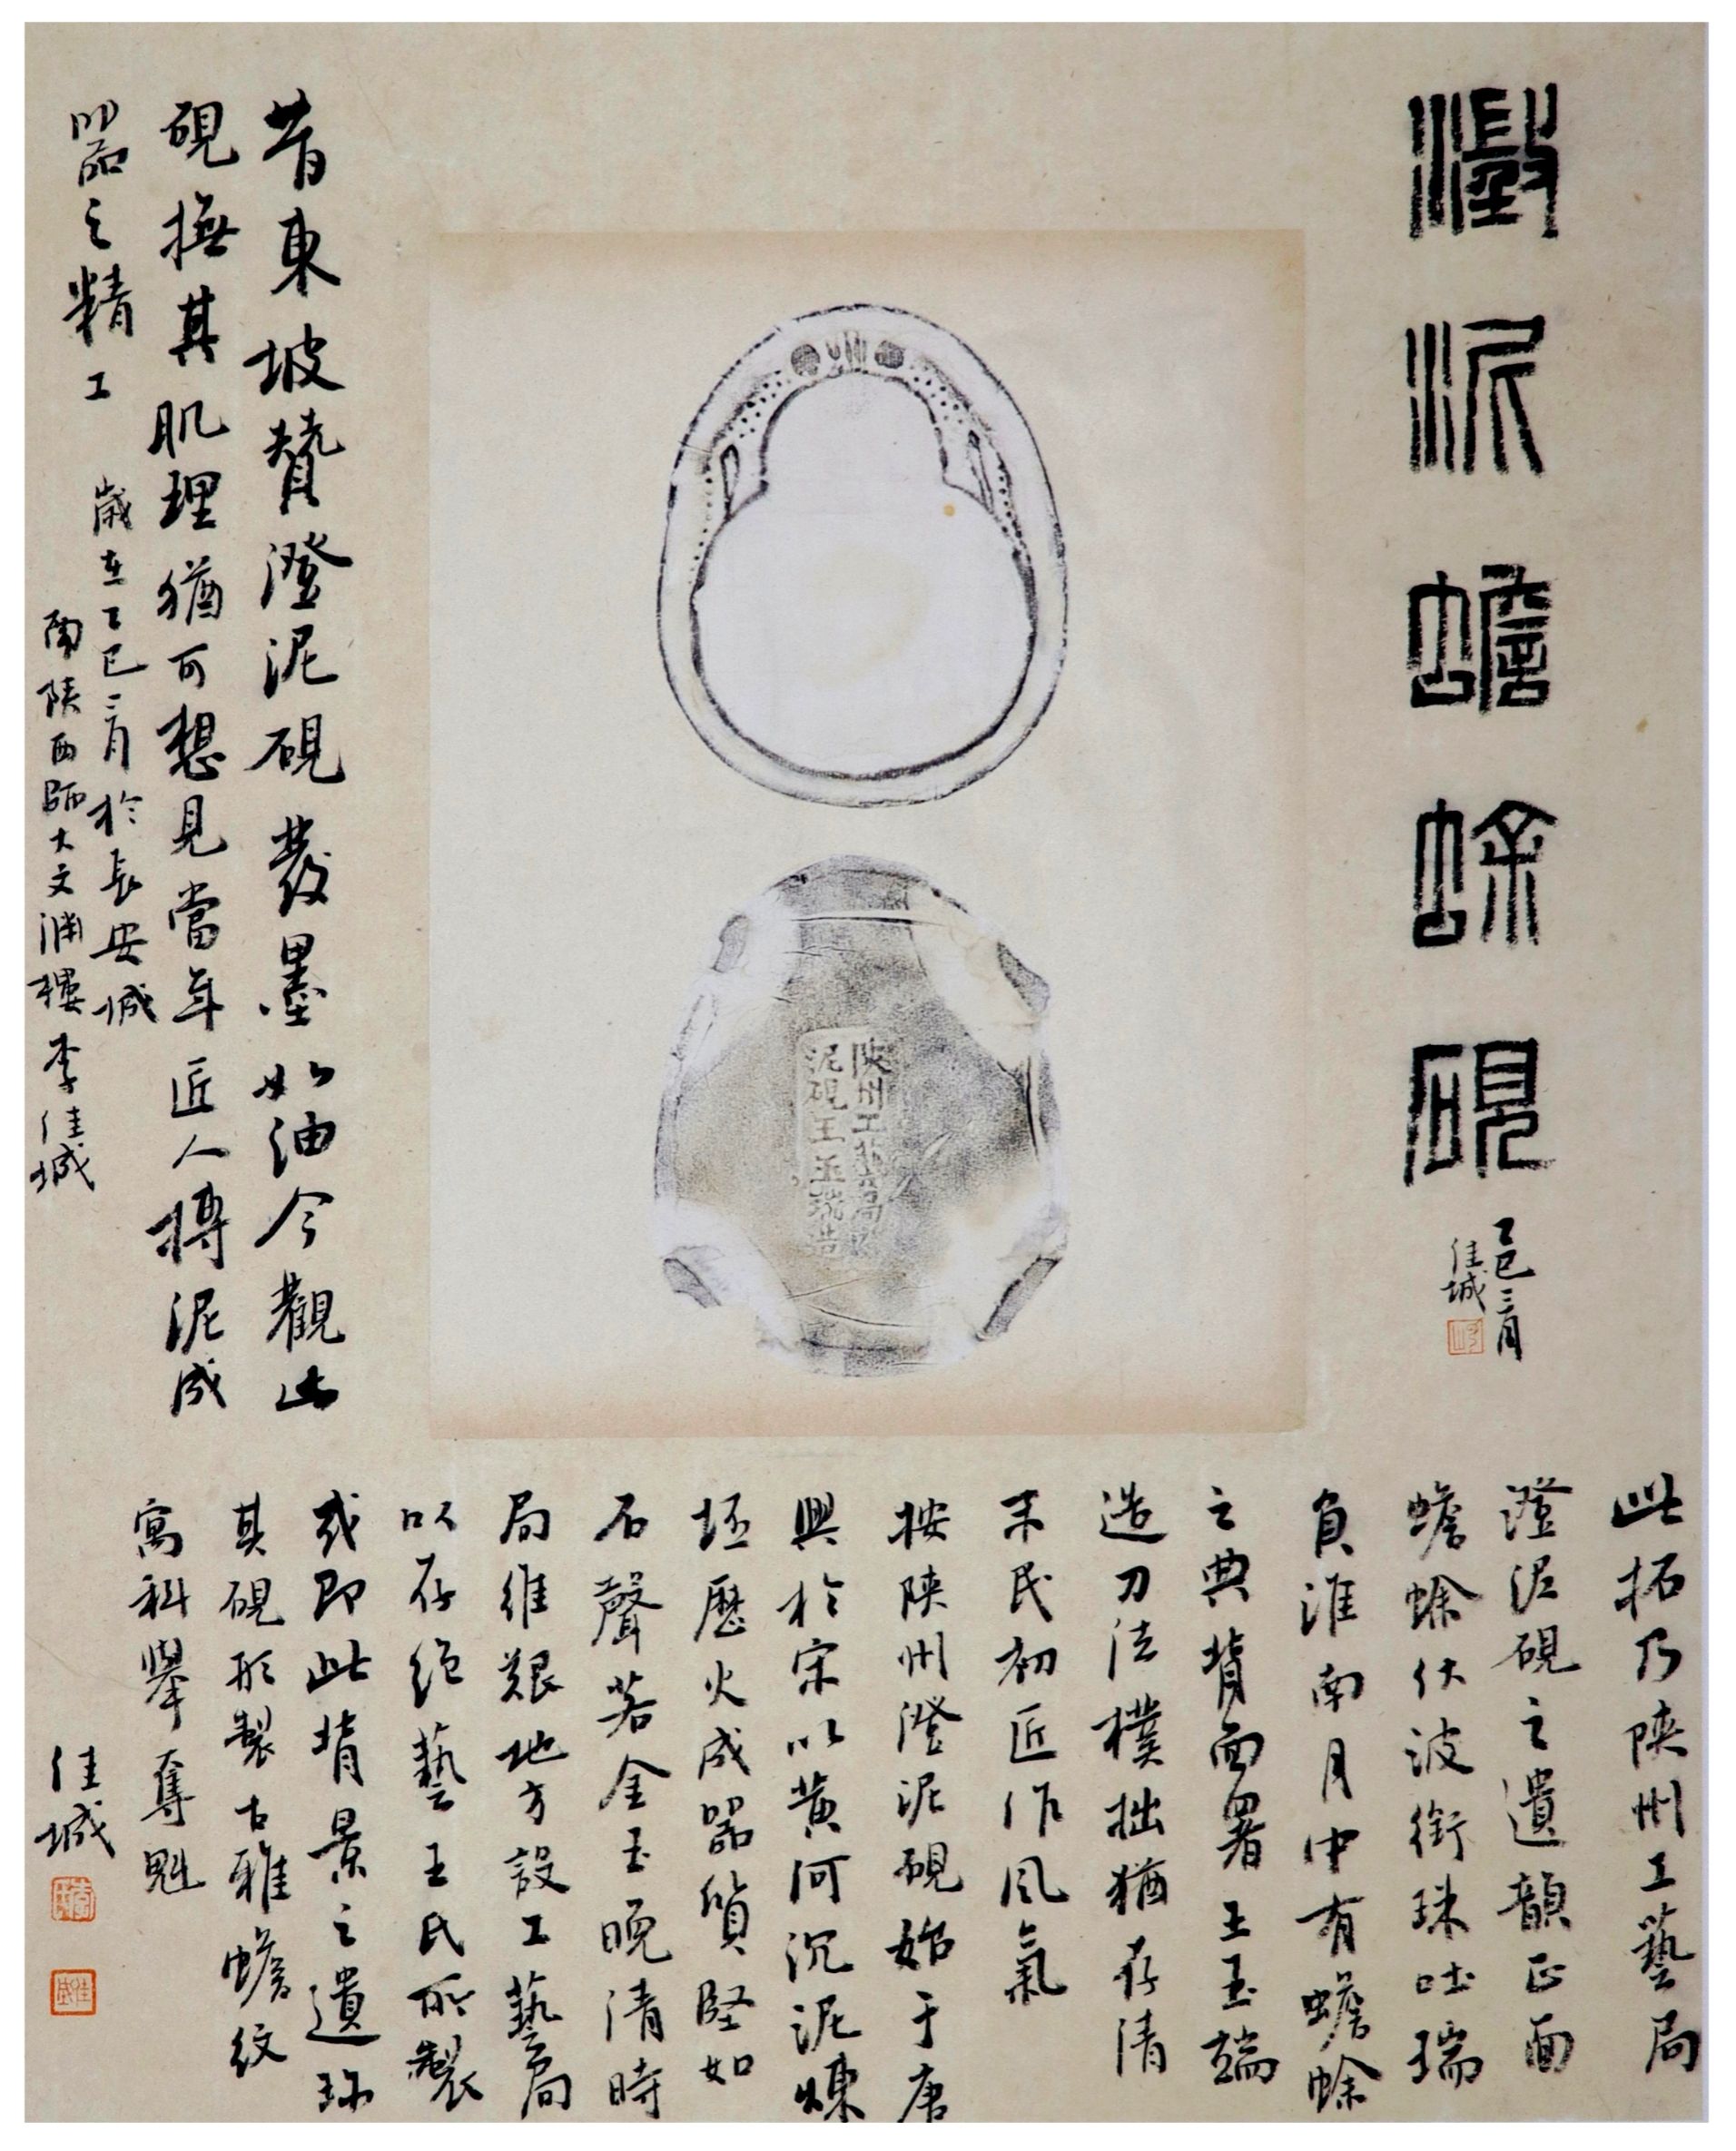 澂泥蟾蜍硯
乙巳三月
佳城
陝州工藝局
泥硯王玉瑞造
昔東坡贊澄泥硯發墨如油今觀此
硯撫其肌理猶可想見當年匠人摶泥成
器之精工
歲在乙巳三月於長安城
南陝西師大文淵樓李佳城
此拓乃陝州工藝局
澄泥硯之遺韻正面
蟾蜍伏波銜珠吐瑞
負淮南月中有蟾蜍
之典背面署王玉端
造刀法樸拙猶存清
末民初匠作風氣
按陝州澄泥硯始于唐
興於宋以黄河沉泥煉
坯歷火成器質堅如
石聲若金玉晚清時
局維艱地方設工藝局
以存絕藝王氏所製
或即此背景之遺珍
其硯形製古雅蟾紋
寓科舉奪魁
佳城